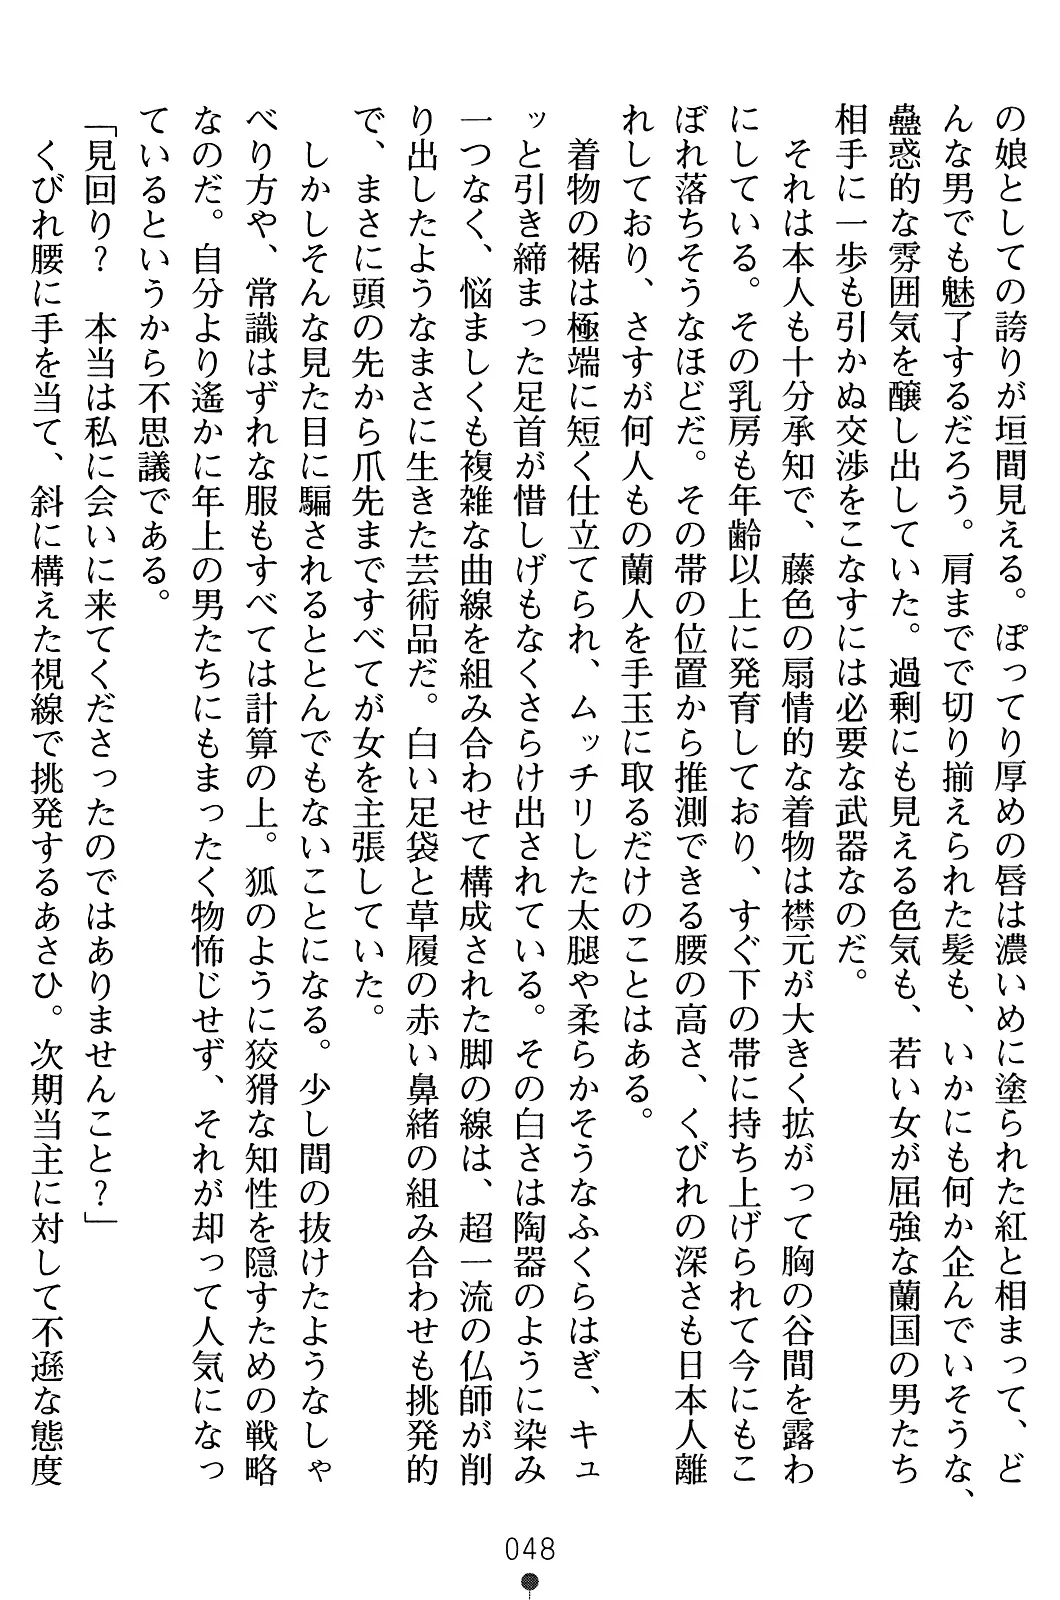 の娘としての誇りが垣間見える。ぽってり厚めの唇は濃いめに塗られた紅と相まって、ど
んな男でも魅了するだろう。肩までで切り揃えられた髪も、いかにも何か企んでいそうな、
蠱惑的な雰囲気を醸し出していた。過剰にも見える色気も、若い女が屈強な蘭国の男たち
相手に一歩も引かぬ交渉をこなすには必要な武器なのだ。
それは本人も十分承知で、藤色の扇情的な着物は襟元が大きく拡がって胸の谷間を露わ
にしている。その乳房も年齢以上に発育しており、すぐ下の帯に持ち上げられて今にもこ
ぼれ落ちそうなほどだ。その帯の位置から推測できる腰の高さ、くびれの深さも日本人離
れしており、さすが何人もの蘭人を手玉に取るだけのことはある。
着物の裾は極端に短く仕立てられ、ムッチリした太腿や柔らかそうなふくらはぎ、キュ
ッと引き締まった足首が惜しげもなくさらけ出されている。その白さは陶器のように染み
一つなく、悩ましくも複雑な曲線を組み合わせて構成された脚の線は、超一流の仏師が削
り出したようなまさに生きた芸術品だ。白い足袋と草履の赤い鼻緒の組み合わせも挑発的
で、まさに頭の先から爪先まですべてが女を主張していた。
しかしそんな見た目に騙されるととんでもないことになる。少し間の抜けたようなしゃ
べり方や、常識はずれな服もすべては計算の上。狐のように狡猾な知性を隠すための戦略
なのだ。自分より遙かに年上の男たちにもまったく物怖じせず、それが却って人気になっ
ているというから不思議である。
「見回り？　本当は私に会いに来てくださったのではありませんこと？」
くびれ腰に手を当て、斜に構えた視線で挑発するあさひ。次期当主に対して不遜な態度
048